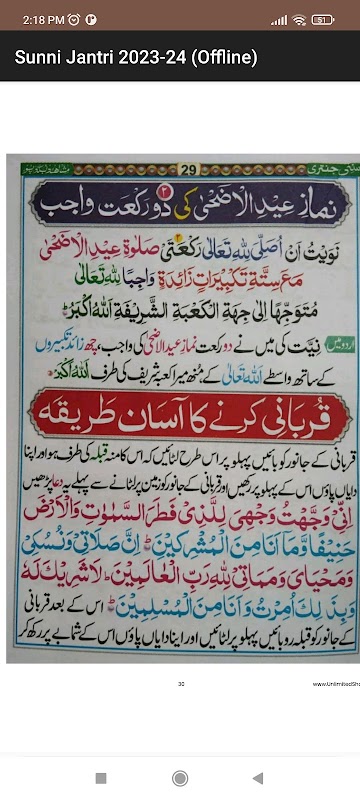 2:18 PM
51
Sunni Jantri 2023-24 (Offline)
29
نمازِ عیدُالاَضحٰی کی دو رکعت واجب
نَوَيْتُ اَنْ اُصَلِّیَ لِلّٰهِ تَعَالٰی رَكْعَتَیْ صَلٰوةِ عِيْدِ الْاَضْحٰی
مَعَ سِتَّةِ تَكْبِيْرَاتٍ زَائِدَةٍ وَاجِبًا لِلّٰهِ تَعَالٰی
مُتَوَجِّهًا اِلٰی جِهَةِ الْكَعْبَةِ الشَّرِيْفَةِ اَللّٰهُ اَكْبَرُ
اردو میں نیت کی میں نے دو رکعت نماز عیدالاضحٰی کی واجب، چھ زائد تکبیروں
کے ساتھ واسطے اللہ تعالیٰ کے، منھ میرا کعبہ شریف کی طرف اَللّٰهُ اَكْبَرُ
قربانی کرنے کا آسان طریقہ
قربانی کے جانور کو بائیں پہلو پر اس طرح لٹائیں کہ اس کا منہ قبلہ کی طرف ہو اور اپنا
دایاں پاؤں اس کے پہلو پر رکھیں اور قربانی کے جانور کو زمین پر لٹانے سے پہلے یہ دعا پڑھیں
اِنِّیْ وَجَّهْتُ وَجْهِیَ لِلَّذِیْ فَطَرَ السَّمٰوٰتِ وَالْاَرْضَ
حَنِيْفًا وَّمَا اَنَا مِنَ الْمُشْرِكِيْنَ اِنَّ صَلَاتِیْ وَنُسُكِیْ
وَمَحْيَایَ وَمَمَاتِیْ لِلّٰهِ رَبِّ الْعَالَمِيْنَ لَا شَرِيْكَ لَهٗ
وَبِذٰلِكَ اُمِرْتُ وَاَنَا مِنَ الْمُسْلِمِيْنَ اس کے بعد قربانی
کے جانور کو قبلہ رو بائیں پہلو پر لٹائیں اور اپنا دایاں پاؤں اس کے شانے پر رکھ کر
30
www.UnlimitedSho